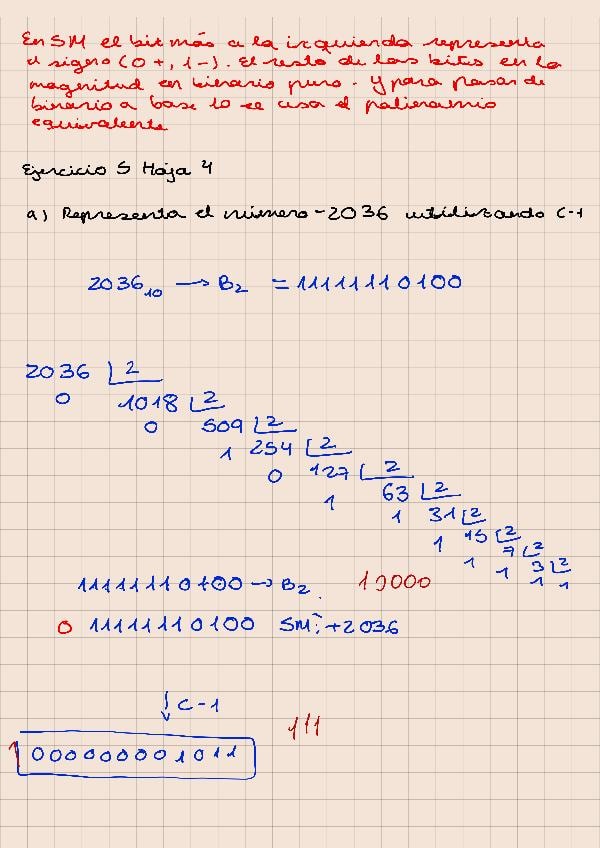 En SM el bit más a la izquierda representa
el signo (0+, 1-). El resto de los bits en la
magnitud en binario puro. Y para pasar de
binario a base 10 se usa el polinomio
equivalente
Ejercicio 5 Hoja 4
a) Representa el número -2036 utilizando C-1
2036₁₀ → B₂ = 11111110100
2036 2
0 1018 2
0 509 2
1 254 2
0 127 2
1 63 2
1 31 2
1 15 2
1 7 2
1 3 2
1 1
11111110100 → B₂. 10000
0 11111110100 SM: +2036
↓ C-1
111
1 000000001011